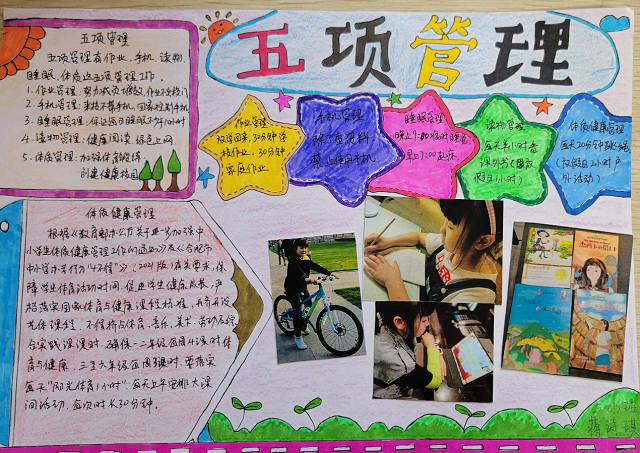 五项管理
五项管理
五项管理有作业、手机、读物、
睡眠、体质这五项管理工作。
1、作业管理：
2、手机管理：
3、睡眠管理：保证每日睡眠不少10小时
4、读物管理：健康阅读、绿色上网。
5、体质管理：加强体育锻炼，
创建健康校园
作业管理
放学回家，30分钟学
校作业，30分钟
家庭作业
手机管理
除了查资料
禁止使用手机
睡眠管理
晚上9:00准时睡觉
早上7:00起床
读物管理
每天半小时看
课外书
体质健康管理
每天20分钟跳绳
户
外活动）
体质健康管理
根据《教育部办公厅关于进一步加强中
小学生体质健康管理工作的通知》及《合肥市
（2021版）有关要求，保
障学生体育活动时间，促进学生健康成长，严
格落实国家体育与健康课程标准，开齐开设
体育课程，不得挤占体育、音乐、美术、劳动及综
合实践课课时。确保一二年级每周4课时体
育与健康，三至六年级每周3课时，要落实
每天"阳光体育1小时"。每天上午安排大课
间活动，每次时长30分钟。